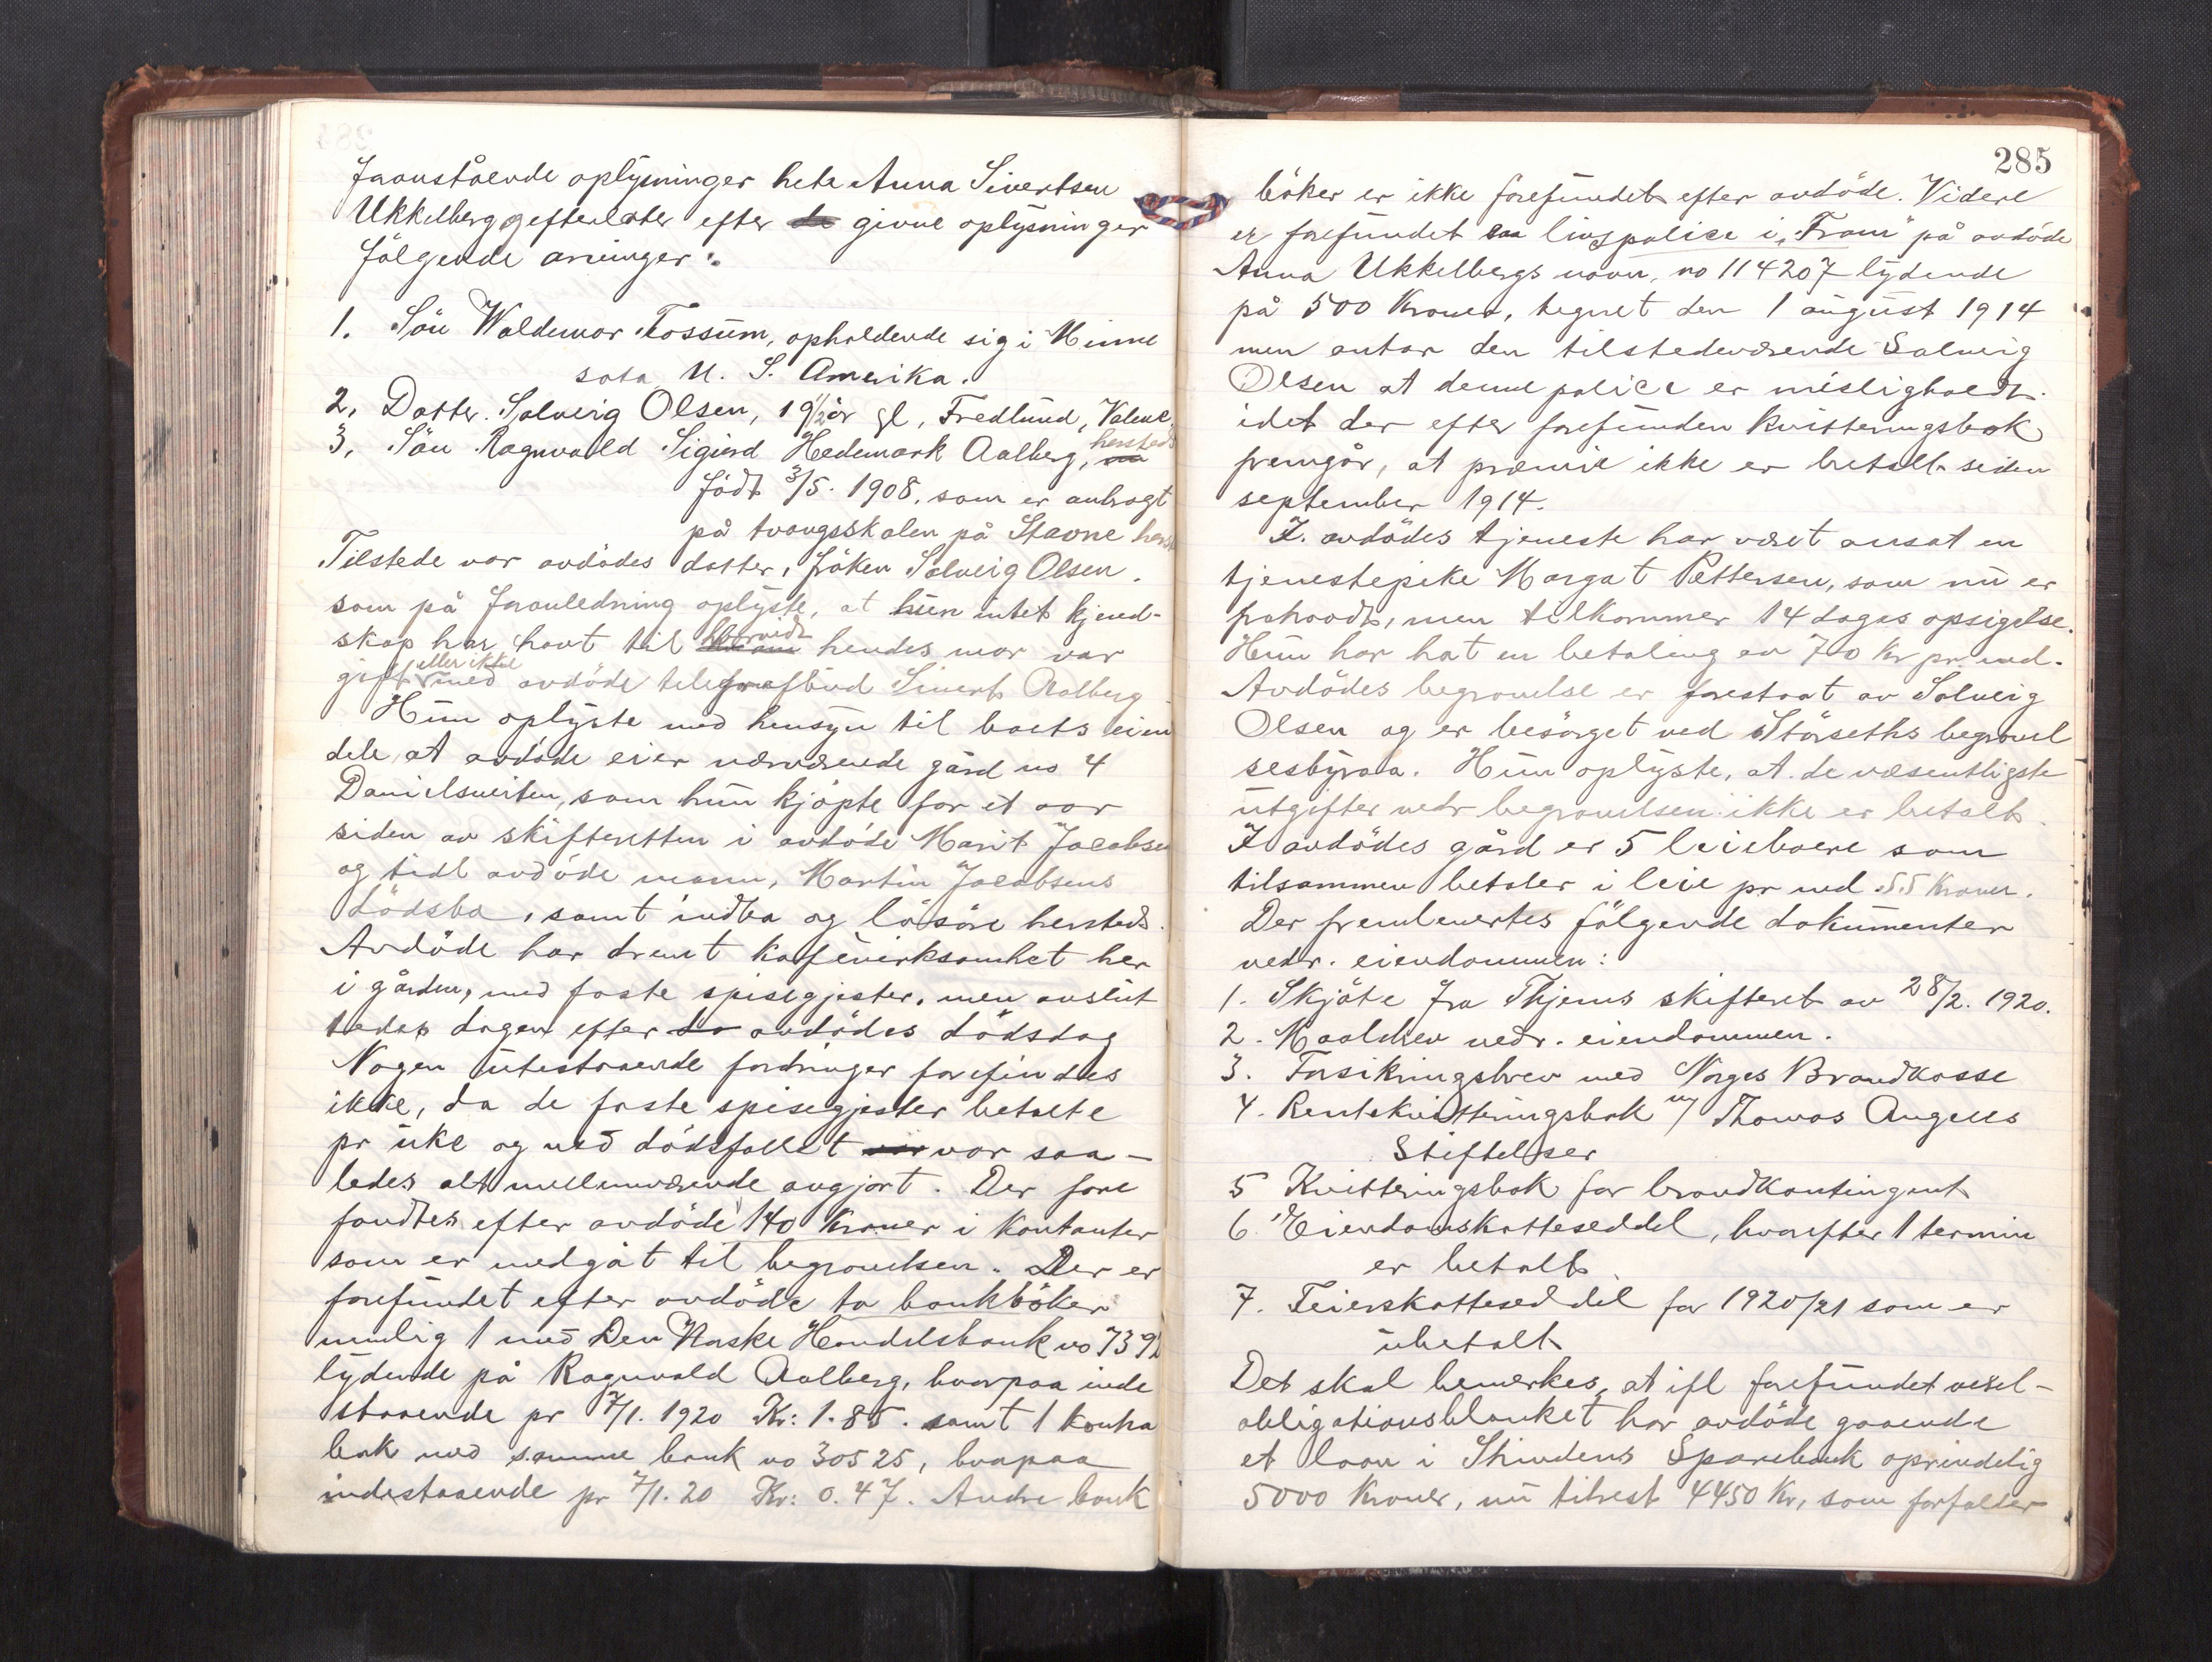 foranstående oplysninger hete Anna Sivertsen
Ukkelberg og efterlater efter de givne oplysninger
følgende arvinger:
1. Sön Waldemar Fossum, opholdende sig i Minne
sota U. S. Amerika.
2. Datter Solveig Olsen, 19 1/2 år gl, Fredlund, Valene
3. Sön Ragnvald Sigurd Hedemark Aalberg, hersteds
födt 3/5. 1908, som er anbragt
på tvangsskolen på Stavne herst
Tilstede var avdödes datter, fröken Solveig Olsen.
som på foranledning oplyste, at hun intet kjend-
skap har havt til hvorvidt hendes mor var
gift eller ikke med avdöde telegrafbud Sivert Aalberg
Hun oplyste med hensyn til boets eien
dele, at avdöde eier nærværende gård no 4
Danielsveiten, som hun kjöpte for et aar
siden av skifteretten i avdöde Marit Jacobsen
og tidl avdöde mann, Martin Jacobsens
dödsbo, samt indbo og lösöre hersteds.
Avdöde har drevt kafévirksomhet her
i gården, med faste spisegjester, men avslut
tedes dagen efter avdödes dödsdag
Nogen utestaaende fordringer forefindes
ikke, da de faste spisegjester betalte
pr uke og ved dödsfallet var saa-
ledes alt mellemværende avgjort. Der fore
fandtes efter avdöde 140 Kroner i kontanter
som er medgåt til begravelsen. Der er
forefundet efter avdöde to bankböker
nemlig 1 med Den Norske Handelsbank no 7392
lydende på Ragnvald Aalberg, hvorpaa inde
staaende pr 7/1. 1920 Kr: 1.85. samt 1 kontra
bok med samme bank no 30525, hvorpaa
indestaaende pr 7/1. 20 Kr: 0.47. Andre bank
285
böker er ikke forefundet efter avdöde. Videre
er forefundet livspolice i "Fram" på avdöde
Anna Ukkelbergs navn, no 114207 lydende
på 500 Kroner, tegnet den 1 august 1914
men antar den tilstedeværende Solveig
Olsen at denne police er misligholdt
idet der efter forefunden kvitteringsbok
fremgår, at præmie ikke er betalt siden
september 1914.
I avdödes tjeneste har været ansat en
tjenestepike Margat Pettersen, som nu er
frahændt, men tilkommer 14 dages opsigelse.
Hun har hat en betaling av 70 Kr pr. md.
Avdödes begravelse er forestaat av Solveig
Olsen og er besörget ved Störseths begravel
sesbyraa. Hun oplyste, at de væsentligste
utgifter vedr begravelsen ikke er betalt.
I avdödes gård er 5 leieboere som
tilsammen betaler i leie pr md 55 Kroner.
Der fremlevertes fölgende dokumenter
vedr. eiendommen:
1. Skjöte fra Thjems skifteret av 28/2. 1920.
2. Maalebrev vedr. eiendommen.
3. Forsikringsbrev med Norges Brandkasse
4. Rentekvitteringsbok m/ Thomas Angells
Stiftelser
5 Kvitteringsbok for brandkontingent
6. Eiendomsskatteseddel, hvorefter 1 termin
er betalt
7. Feierskatteseddel for 1920/21 som er
ubetalt
Det skal bemerkes, at ifl forefundet veksel-
obligationsblanket har avdöde gaaende
et laan i Strindens Sparebank oprindelig
5000 Kroner, nu tilrest 4450 Kr, som forfalder